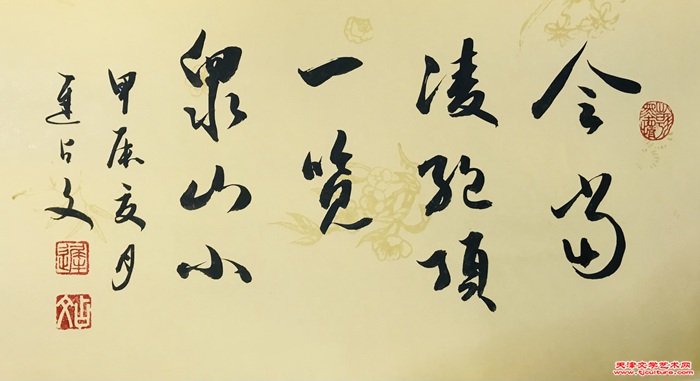 会當
凌絕頂
一览
眾山小
甲辰夏月
占文
天津文学艺术网
www.tjculture.com